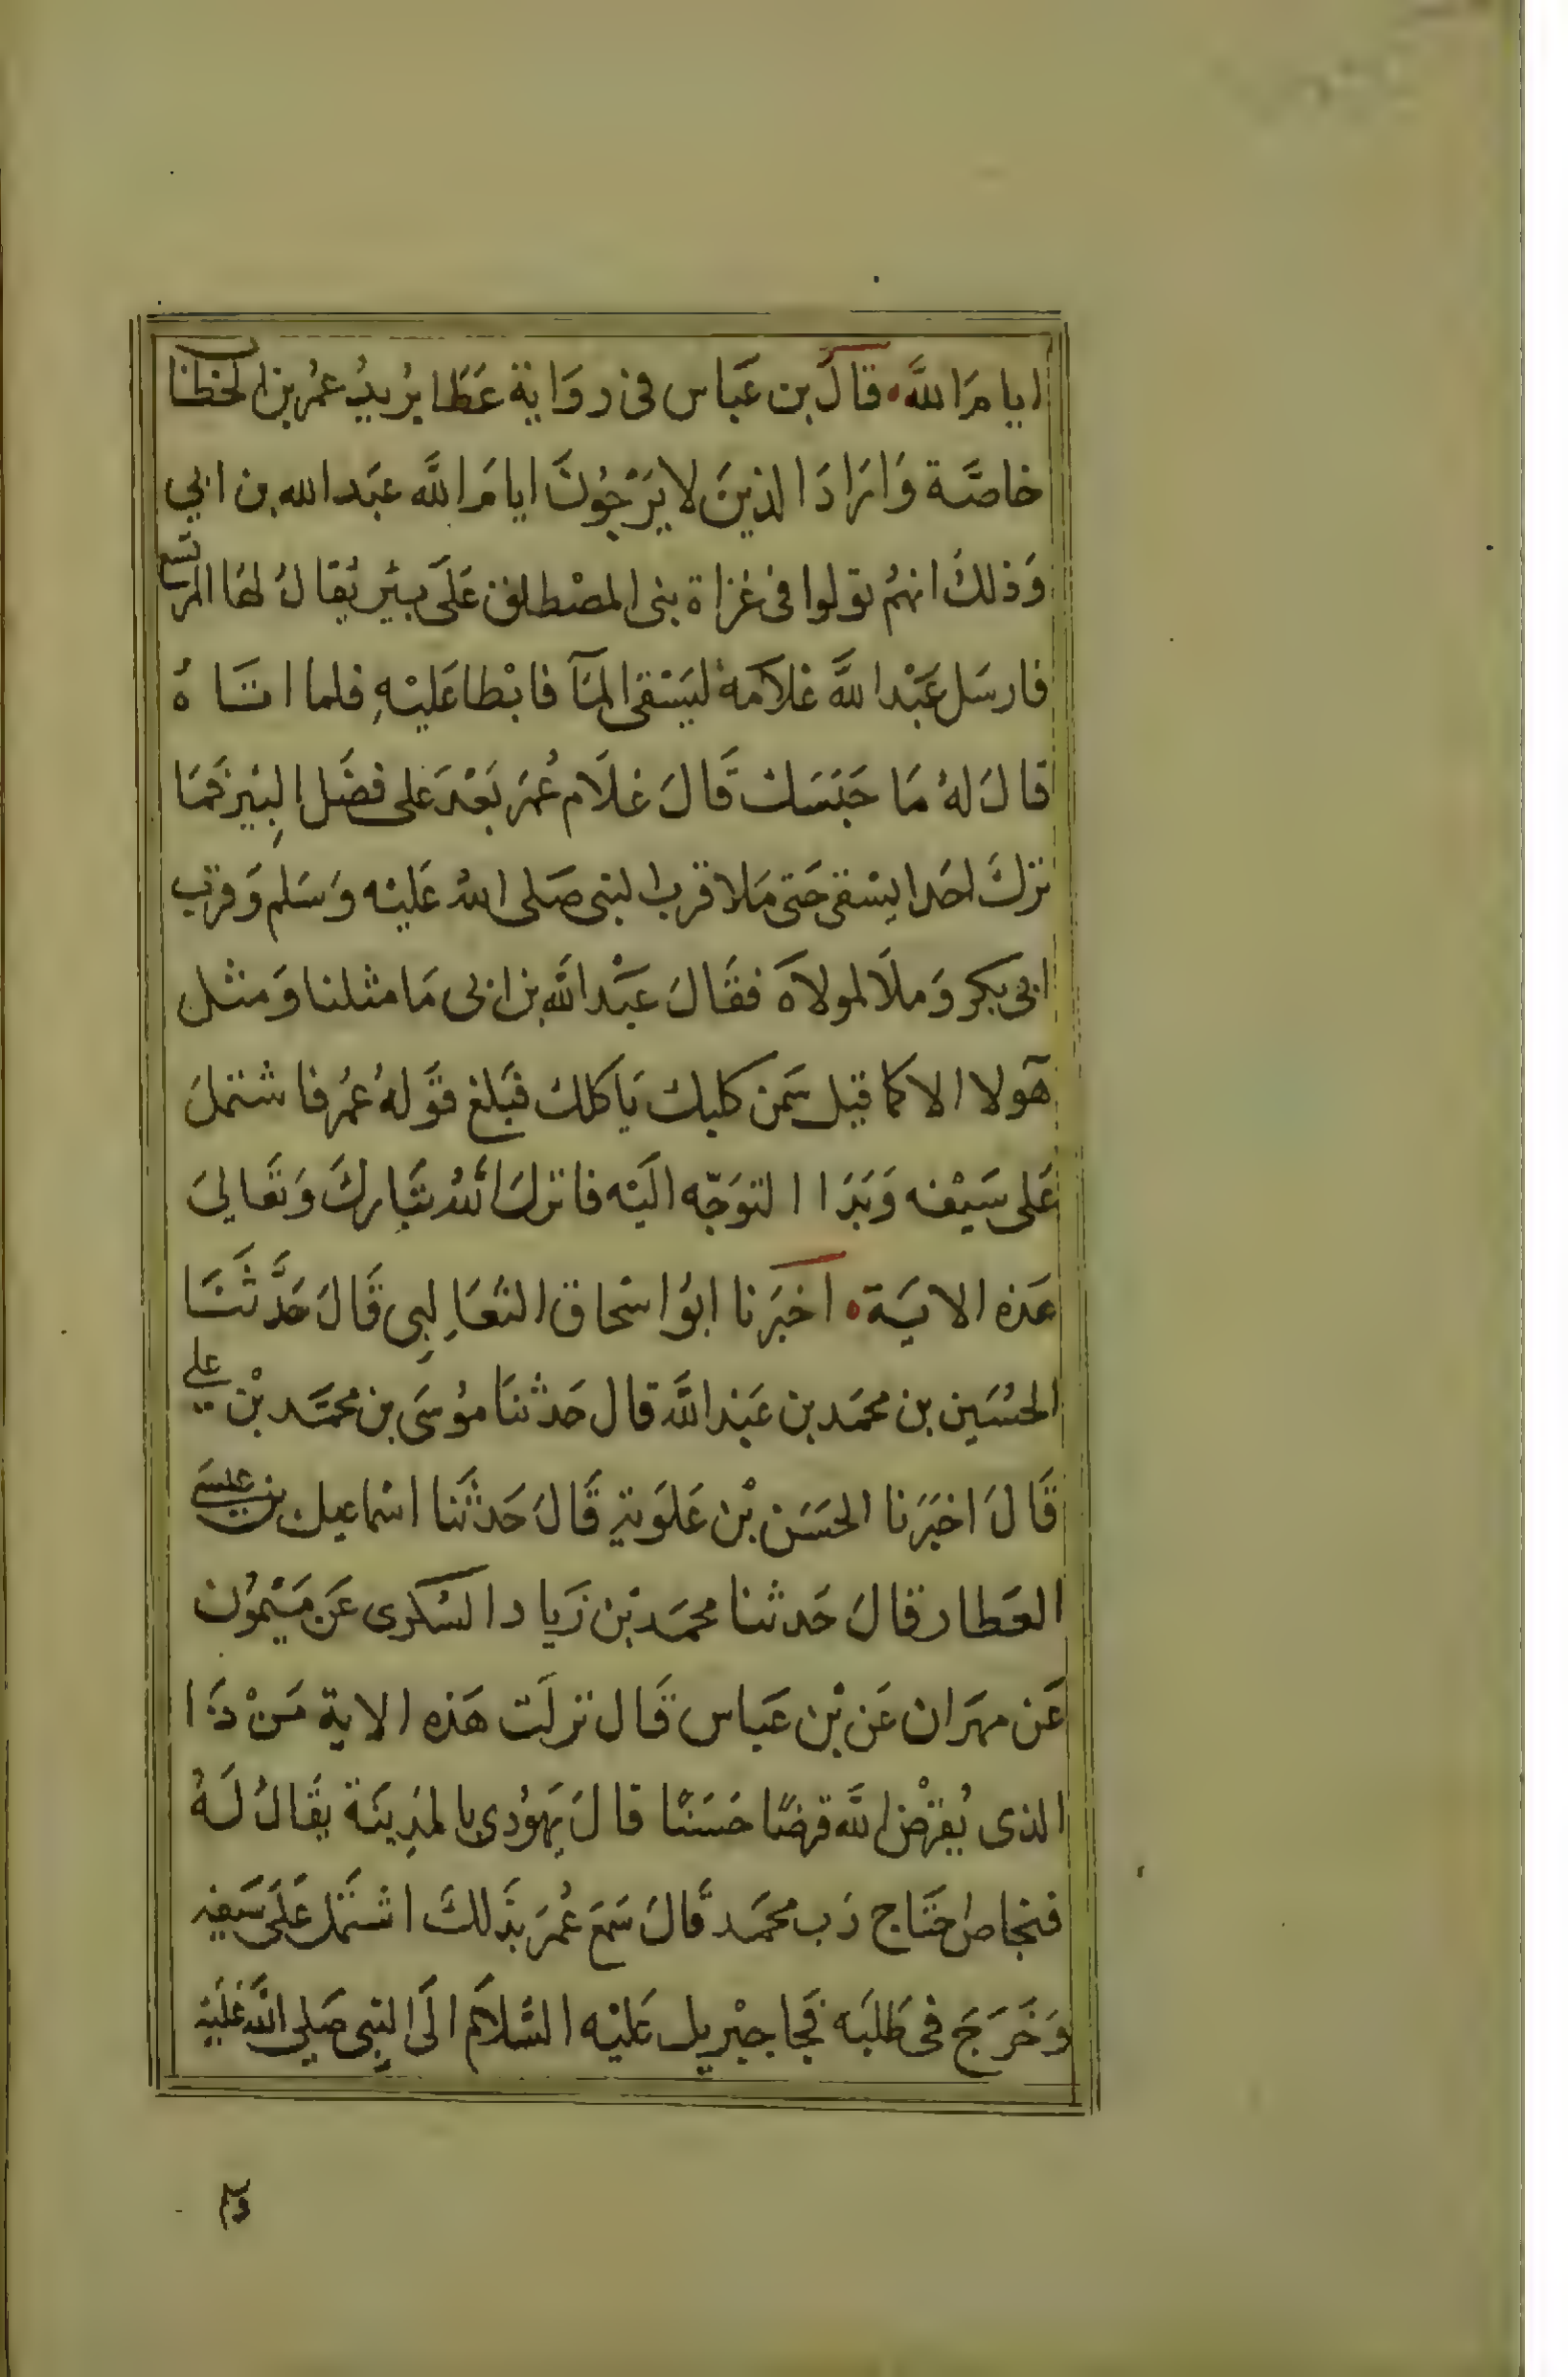 ايام الله قال بن عباس فى رواية عطا يريد عمر بن الخطاب
خاصة واراد الذين لا يرجون ايام الله عبد الله بن ابي
وذلك انهم نولوا فى غزاة بنى المصطلق على بير يقال لها المريسع
فارسل عبد الله غلامه ليستقى المآ فابطا عليه فلما اتاه
قال له ما حبسك قال غلام عمر بعد على فضل البير فما
ترك احدا يستقى حتى ملا قرب النبى صلى الله عليه وسلم وقرب
ابى بكر وملا لمولاه فقال عبد الله بن ابى ما مثلنا ومثل
هولا الا كما قيل سمن كلبك ياكلك فبلغ قوله عمر فاشتمل
على سيفه وبدا التوجه اليه فانزل الله تبارك وتعالي
هذه الاية اخبرنا ابو اسحاق الثعالبى قال حدثنا
الحسين بن محمد بن عبد الله قال حدثنا موسى بن محمد بن علي
قال اخبرنا الحسن بن علوية قال حدثنا اسماعيل بن عيسى
العطار قال حدثنا محمد بن زياد السكرى عن ميمون
عن مهران عن بن عباس قال نزلت هذه الاية من ذا
الذى يقرض الله قرضا حسنا قال يهودى بالمدينة يقال له
فنحاص احتاج رب محمد قال سمع عمر بذلك اشتمل على سيفه
وخرج فى طلبه فجا جبريل عليه السلام الى النبى صلي الله عليه